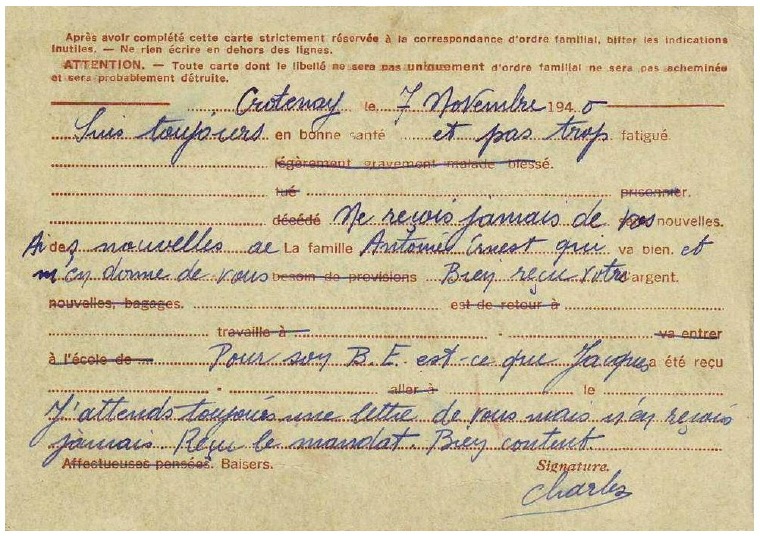 Après avoir complété cette carte strictement réservée à la correspondance d'ordre familial, biffer les indications
inutiles. — Ne rien écrire en dehors des lignes.
ATTENTION. — Toute carte dont le libellé ne sera pas uniquement d'ordre familial ne sera pas acheminée
et sera probablement détruite.
Crotenay le 7 Novembre 1940
Suis toujours en bonne santé et pas trop fatigué.
légèrement gravement malade blessé.
tué prisonnier.
décédé Ne reçois jamais de vos nouvelles.
Ai des nouvelles de La famille Antoine Ernest qui va bien. et
m'en donne de vous besoin de provisions Bien reçu votre argent.
nouvelles, bagages. est de retour à
travaille à va entrer
à l'école de Pour son B.E. est-ce que Jacques a été reçu
aller à le
J'attends toujours une lettre de vous mais n'en reçois
jamais Reçu le mandat. Bien content.
Affectueuses pensées. Baisers. Signature.
Charles